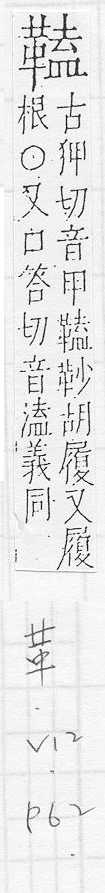 鞳古狎切音甲鞳䩖胡履又履
根〇又口答切音溘義同
革
.
V12
.
P62
.